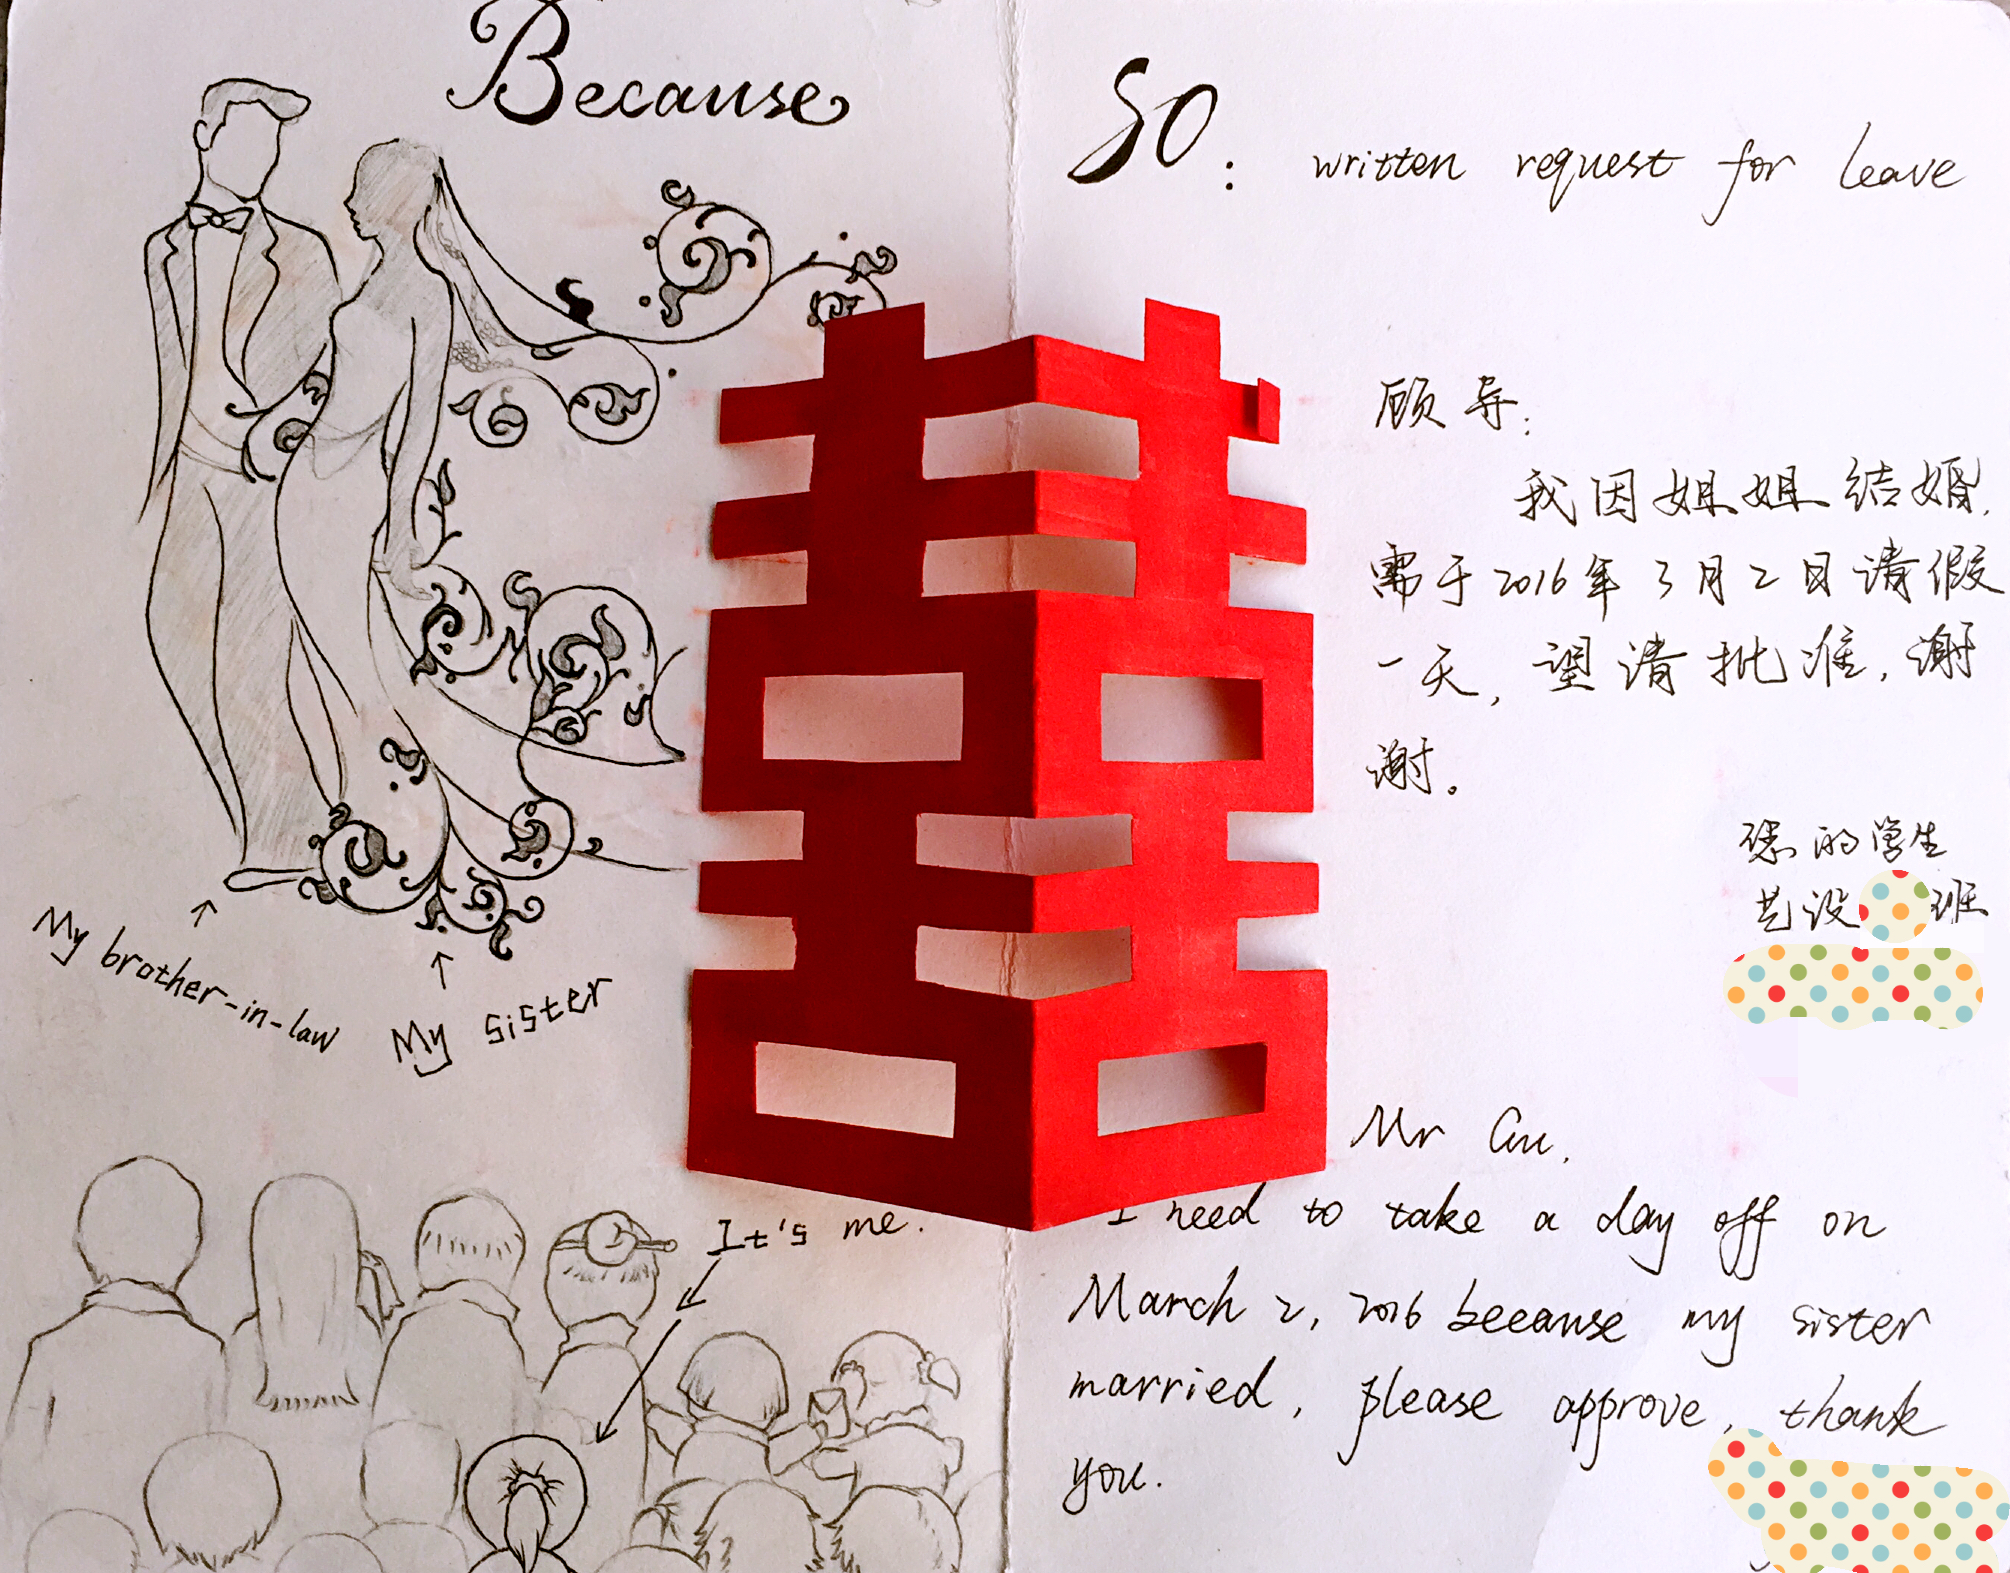 Because
My brother-in-law
My sister
It's me.
SO: written request for leave
顾导:
我因姐姐结婚,
需于2016年3月2日请假
一天,望请批准,谢
谢。
您的学生
艺设 班
Mr Gu,
I need to take a day off on
March 2, 2016 because my sister
married, please approve, thank
you.